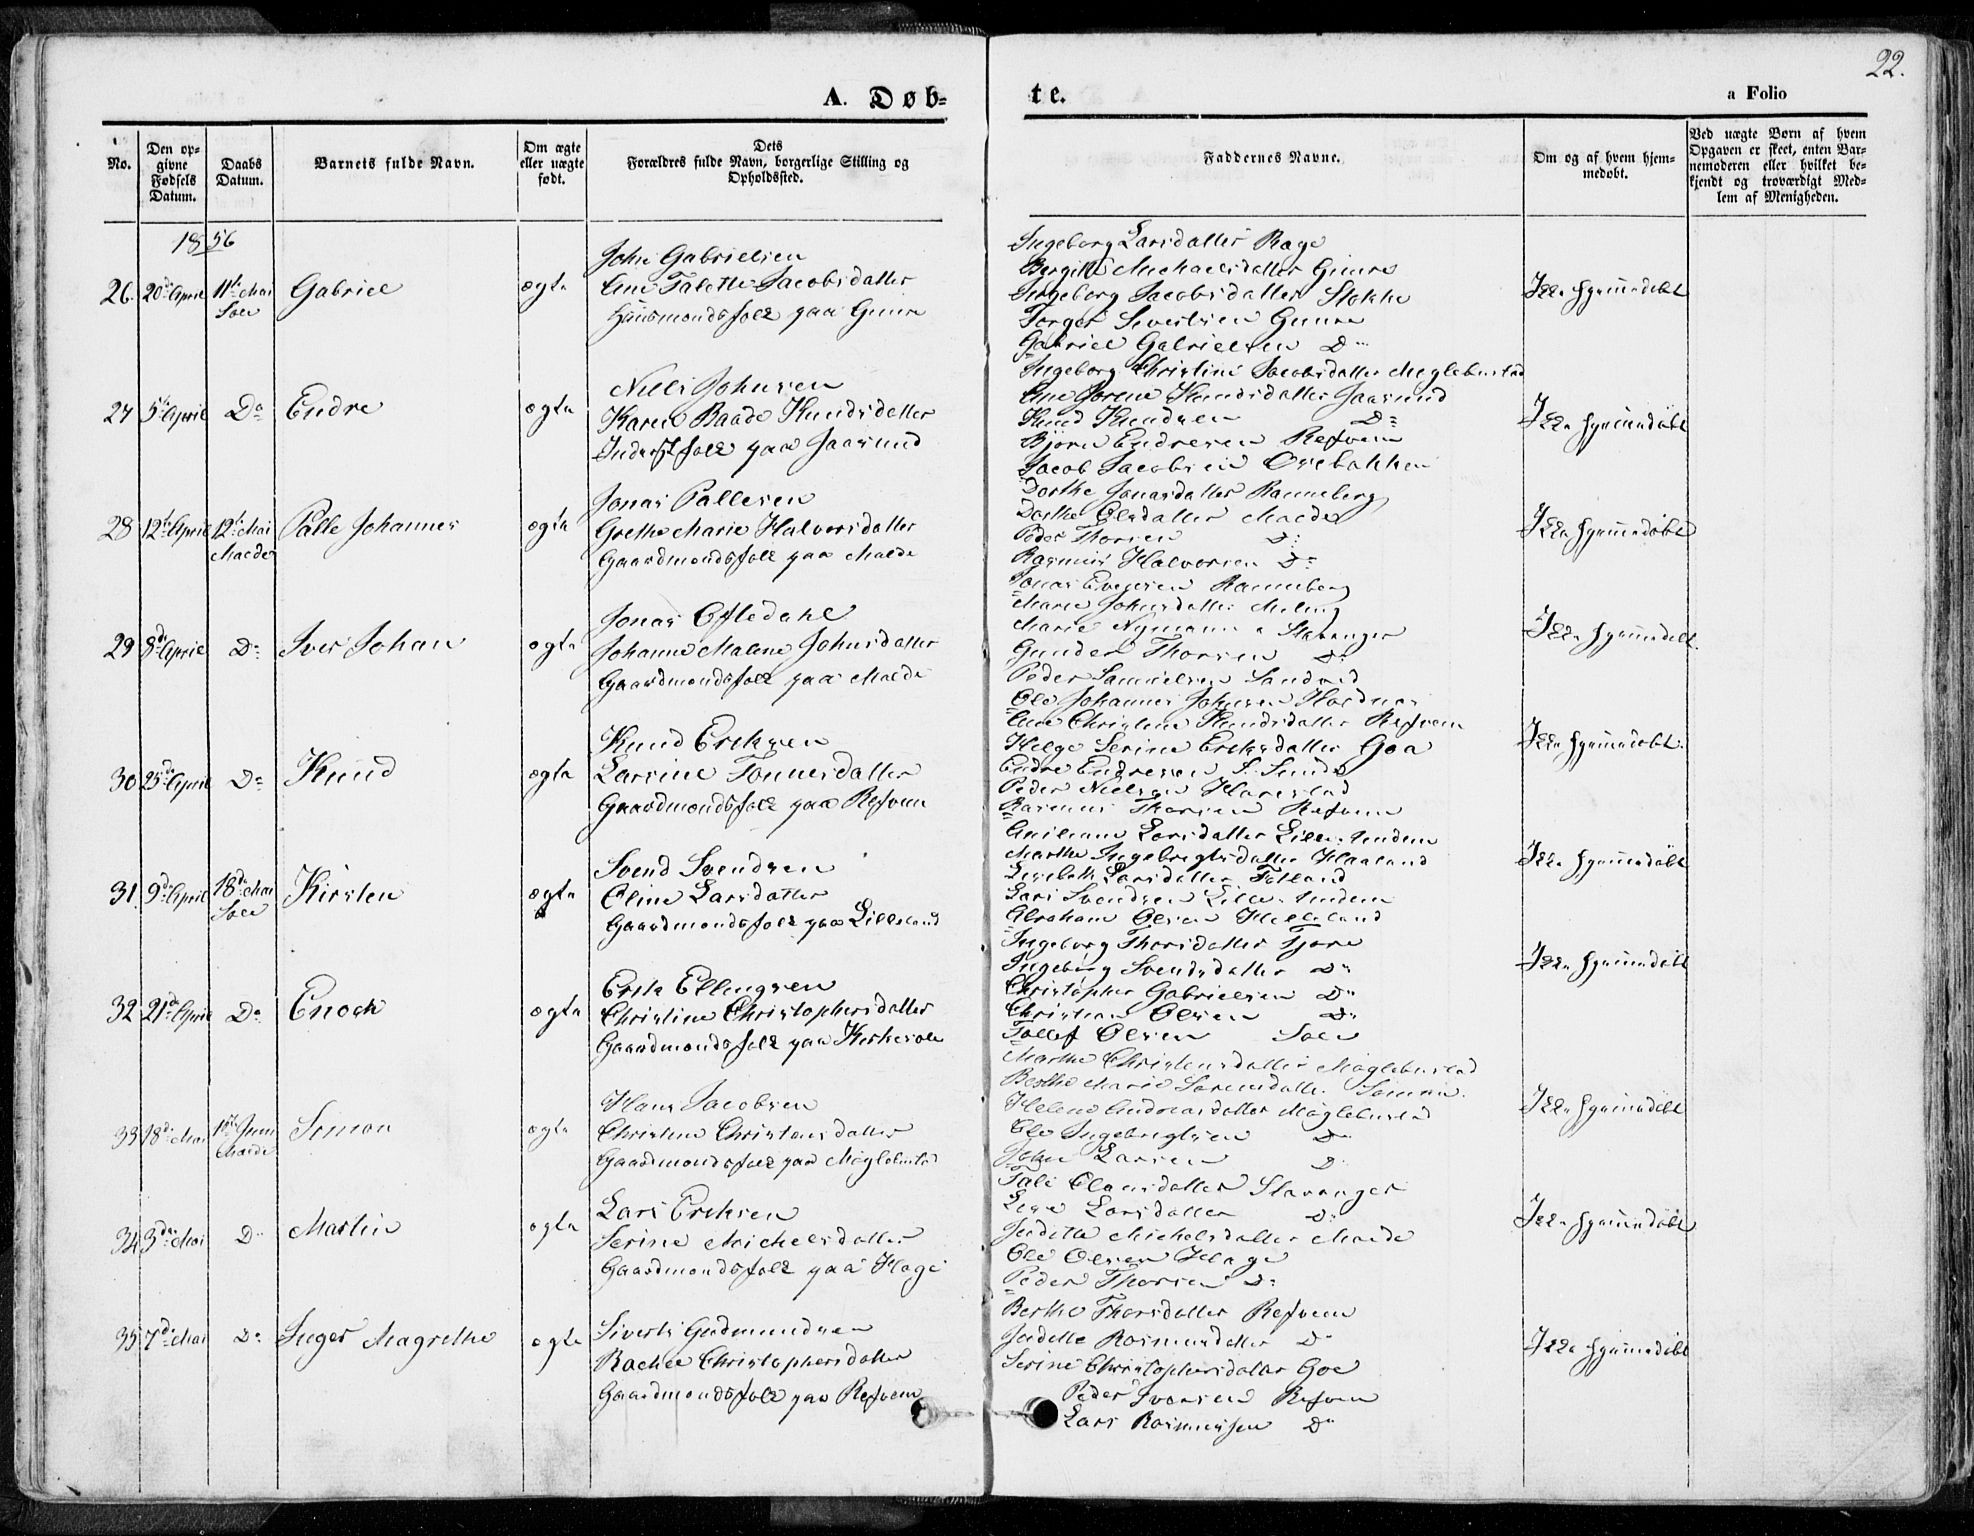 22.
A. Døb-
te.
a Folio
No.
Den op-
givne
Fødsels
Datum.
Daabs
Datum.
Barnets fulde Navn.
Om ægte
eller uægte
født.
Dets
Forældres fulde Navn, borgerlige Stilling og
Opholdssted.
Faddernes Navne.
Om og af hvem hjem-
medøbt.
Ved uægte Børn af hvem
Opgaven er skeet, enten Bar-
nemoderen eller hvilket be-
kjendt og troværdigt Med-
lem af Menigheden.
1856
26. 20de April 11te Mai Gabriel ægte
Sole
John Gabrielsen
Ane Tabetha Jacobsdatter
Huusmandsfolk paa Gimre
Ingeborg Larsdatter Rage
Bergitte Michaelsdatter Gimre
Ingeborg Jacobsdatter Stokke
Torger Sivertsen Gimre
Gabriel Gabrielsen Do
Ikke hjemmedøbt
27 5te April Do Endre ægte
Niels Johnsen
Karen Baade Knudsdatter
Inderstfolk paa Jaasund
Ingeborg Christine Jacobsdatter Meglebustad
Ane Serene Knudsdatter Jaasund
Knud Knudsen Do
Bjørn Endresen Refvem
Jacob Jacobsen Osebakken
Ikke hjemmedøbt
28 12te April 12te Mai Palle Johannes ægte
Malde
Jonas Pallesen
Grethe Marie Halvorsdatter
Gaardmandsfolk paa Malde
Dorthe Jonasdatter Ranneberg
Dorthe Olsdatter Malde
Peder Thorsen Do
Rasmus Halvorsen Do
Jonas Evensen Ranneberg
Ikke hjemmedøbt
29 8de April Do Iver Johan ægte
Jonas Ofledahl
Johanne Malene Johnsdatter
Gaardmandsfolk paa Malde
Marie Johnsdatter Meling
Marie Nymann Stavanger
Gunder Thorsen Do
Peder Samuelsen Sandved
Ole Johannes Johnsen
Ikke hjemmedøbt.
30 25de April Do Knud ægte
Knud Eriksen
Larsine Tønnesdatter
Gaardmandsfolk paa Refvem
Ane Christine Knudsdatter Refvem
Helge Serine Eriksdatter Goa
Endre Endresen S. Sunde
Peder Nielsen Harestad
Rasmus Thorsen Refvem
Ikke hjemmedøbt.
31. 9de April 18de Mai Kirsten ægte
Sole
Svend Svendsen
Oline Larsdatter
Gaardmandsfolk paa Lillesand
Larsdatter Lille
Marthe Ingebregtsdatter Haaland
Lisebeth Larsdatter Folland
Lars Svendsen Lille
Abraham Olsen Helleland
Ikke hjemmedøbt
32 21de April Do Enoch ægte
Erik Ellingsen
Christine Christophersdatter
Gaardmandsfolk paa Kirkesole
Ingeborg Thorsdatter Tjore
Ingeborg Svendsdatter Do
Christopher Gabrielsen Do
Christian Olsen Do
Tollef Olsen Sole
Ikke hjemmedøbt
33 18de Mai 10de Juni Simon ægte
Malde
Hans Jacobsen
Christine Christensdatter
Gaardmandsfolk paa Møglebustad
Marthe Christensdatter Møglebustad
Berthe Marie Sørensdatter Sømme.
Helene Andreasdatter Møglebustad
Ole Ingebregtsen Do
John Larsen Do
Ikke hjemmedøbt
34 3die Mai Do Martin ægte
Lars Eriksen
Serine Michelsdatter
Gaardmandsfolk paa Hage
Tale Clausdatter Stavanger
Lise Larsdatter Do
Judithe Michelsdatter Malde
Ole Olsen Hage
Peder Thorsen Do
Ikke hjemmedøbt
35 7de Mai Do Inger Magrethe ægte
Siverts Gudmundsen
Rachel Christophersdatter
Gaardmandsfolk paa Refvem
Berthe Thorsdatter Refvem
Judithe Rasmusdatter Do
Serine Christophersdatter Goe
Peder Iversen Refvem
Lars Rasmussen Do
Ikke hjemmedøbt